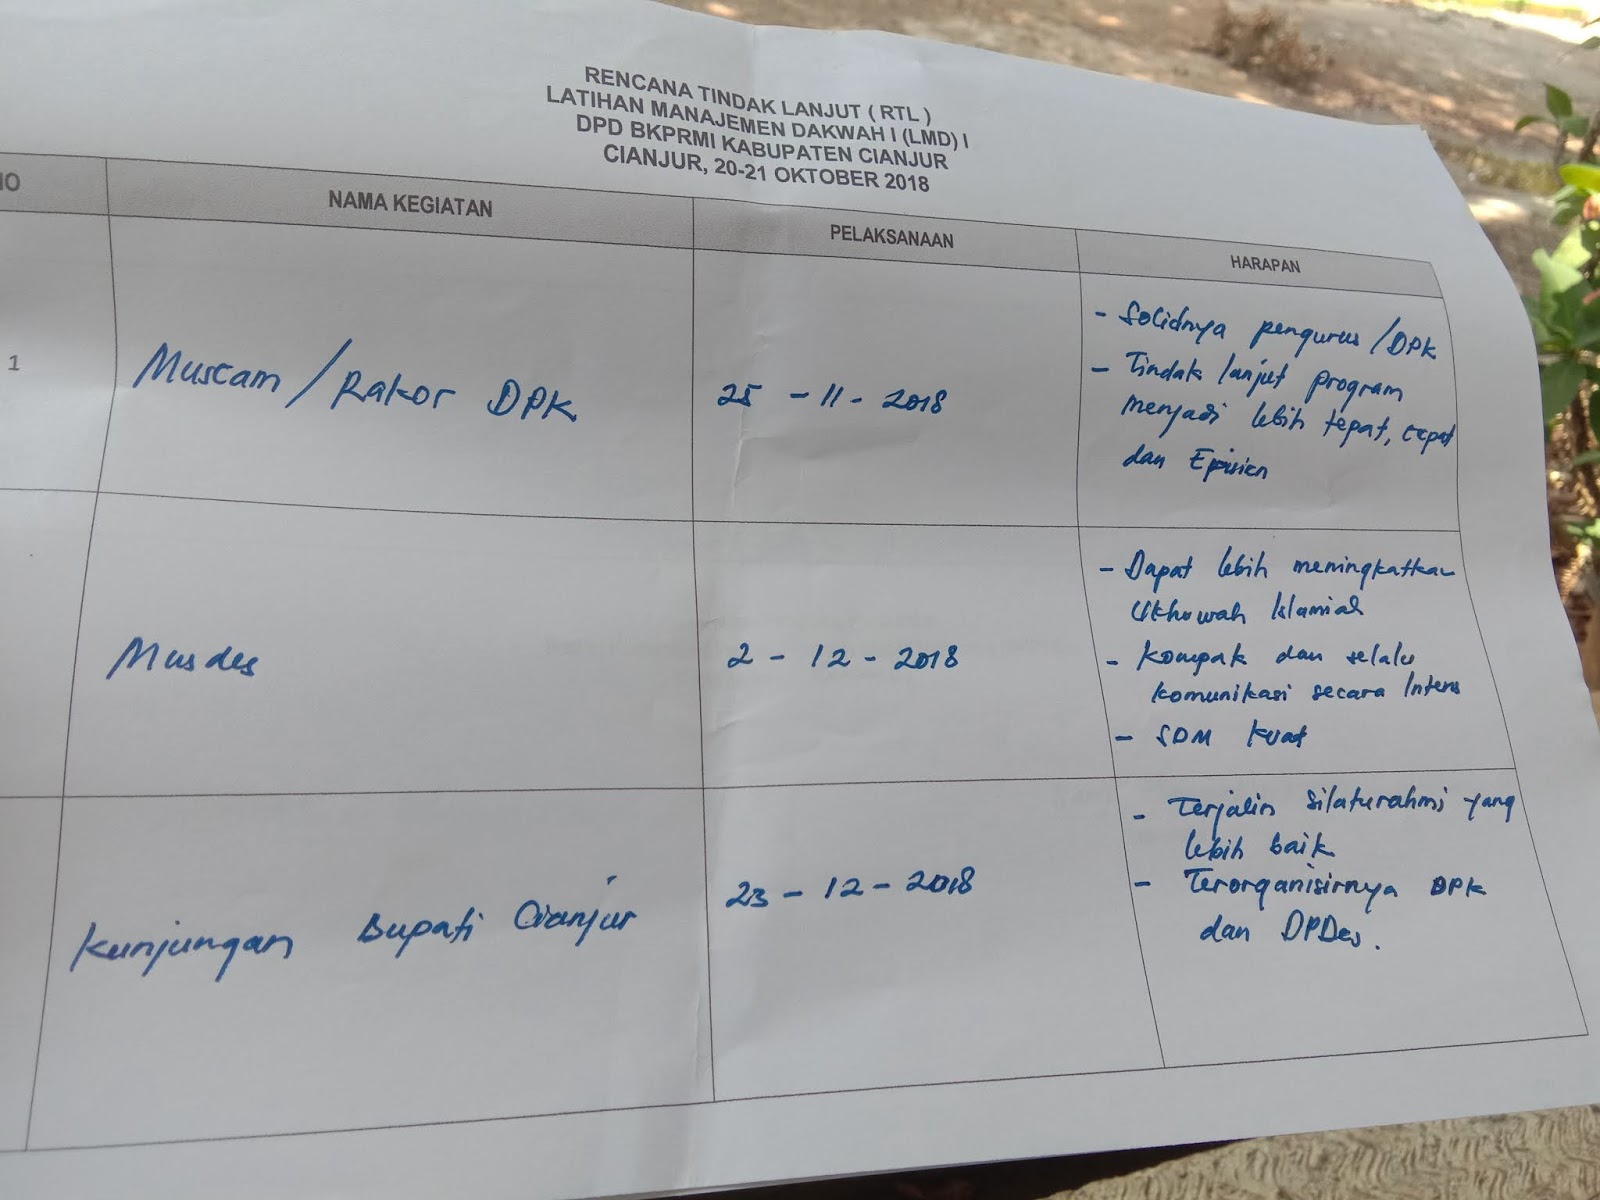 RENCANA TINDAK LANJUT ( RTL )
LATIHAN MANAJEMEN DAKWAH I (LMD) I
DPD BKPRMI KABUPATEN CIANJUR
CIANJUR, 20-21 OKTOBER 2018
NAMA KEGIATAN
PELAKSANAAN
HARAPAN
1
Muscam / Rakor DPK
25 - 11 - 2018
- Solidnya pengurus / DPK
- Tindak lanjut program
menjadi lebih tepat, cepat
dan Episien
Musdes
2 - 12 - 2018
- Dapat lebih meningkatkan
Ukhuwah Islamiah
- Kompak dan selalu
komunikasi secara Intens
- SDM Kuat
Kunjungan Bupati Cianjur
23 - 12 - 2018
- Terjalin Silaturahmi yang
lebih baik
- Terorganisirnya DPK
dan DPDes.